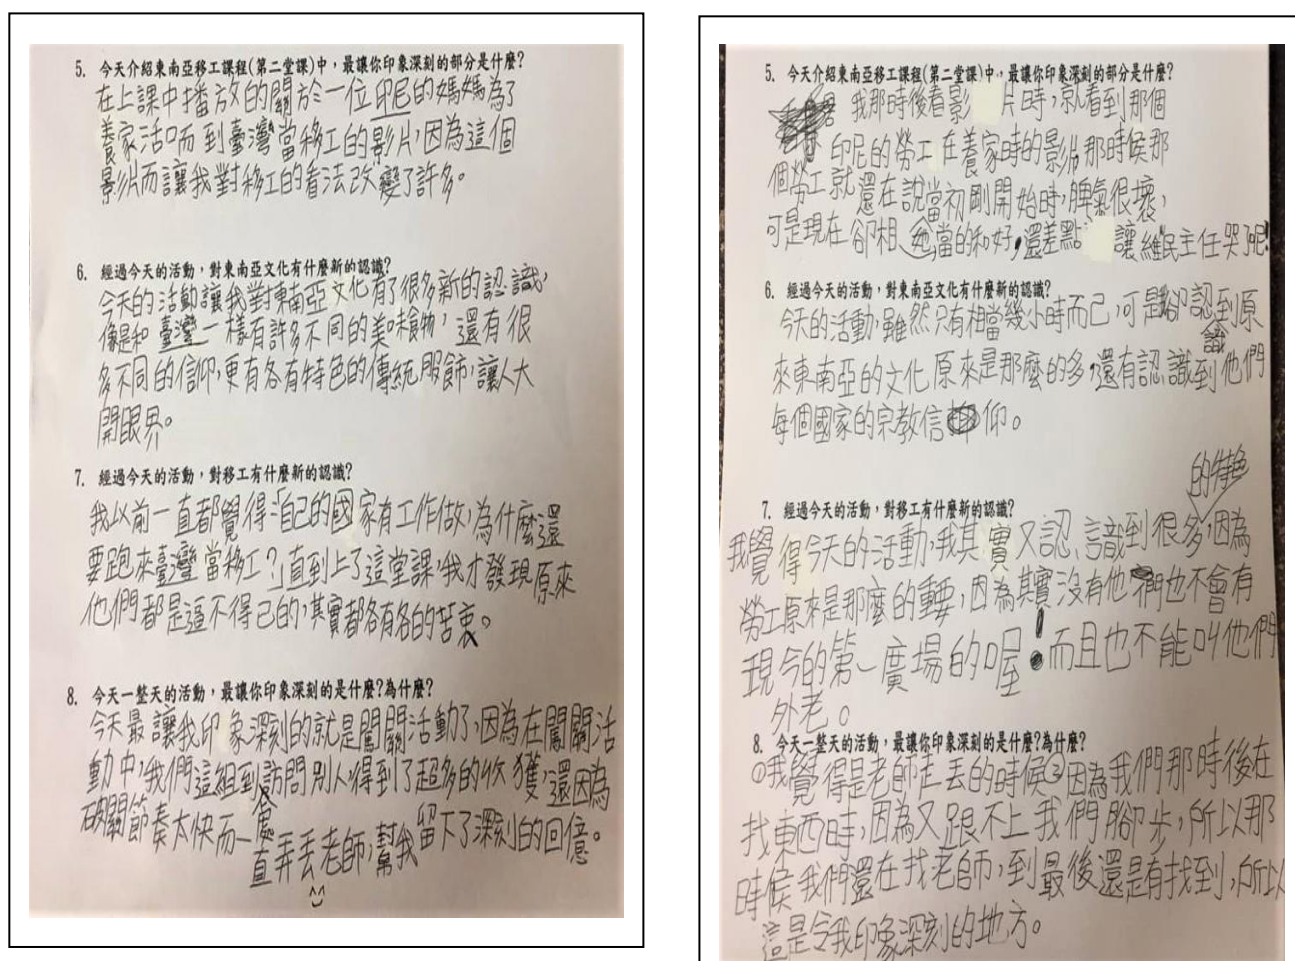 5. 今天介紹東南亞移工課程(第二堂課)中，最讓你印象深刻的部分是什麼?
在上課中播放的關於一位印尼的媽媽為了
養家活口而到臺灣當移工的影片，因為這個
影片而讓我對移工的看法改變了許多。
6. 經過今天的活動，對東南亞文化有什麼新的認識?
今天的活動讓我對東南亞文化有了很多新的認識，
像是和臺灣一樣有許多不同的美味食物，還有很
多不同的信仰，更有各有特色的傳統服飾，讓人大
開眼界。
7. 經過今天的活動，對移工有什麼新的認識?
我以前一直都覺得:「自己的國家有工作做，為什麼還
要跑來臺灣當移工?」直到上了這堂課，我才發現原來
他們都是逼不得已的，其實都各有各的苦衷。
8. 今天一整天的活動，最讓你印象深刻的是什麼?為什麼?
今天最讓我印象深刻的就是闖關活動了，因為在闖關活
動中，我們這組到處訪問別人得到了超多的收獲，還因為
破關節奏太快而一
直弄丟老師，幫我留下了深刻的回億。
5. 今天介紹東南亞移工課程(第二堂課)中，最讓你印象深刻的部分是什麼?
我那時後看影片時，就看到那個
印尼的勞工在養家時的影片那時候那
個勞工就還在說當初剛開始時，脾氣很壞，
可是現在卻相處當的和好，還差點讓維民主任哭了呢!
6. 經過今天的活動，對東南亞文化有什麼新的認識?
今天的活動，雖然只有相當幾小時而已，可是卻認識到原
來東南亞的文化原來是那麼的多，還有認識到他們
每個國家的宗教信仰。
7. 經過今天的活動，對移工有什麼新的認識?
我覺得今天的活動，我其實又認識到很多的特色，因為
勞工原來是那麼的重要，因為其實沒有他們也不會有
現今的第一廣場的喔!而且也不能叫他們
外老。
8. 今天一整天的活動，最讓你印象深刻的是什麼?為什麼?
①我覺得是老師走丟的時候②因為我們那時後在
找東西時，因為又跟不上我們腳步，所以那
時候我們還在找老師，到最後還是有找到，所以
這是令我印象深刻的地方。